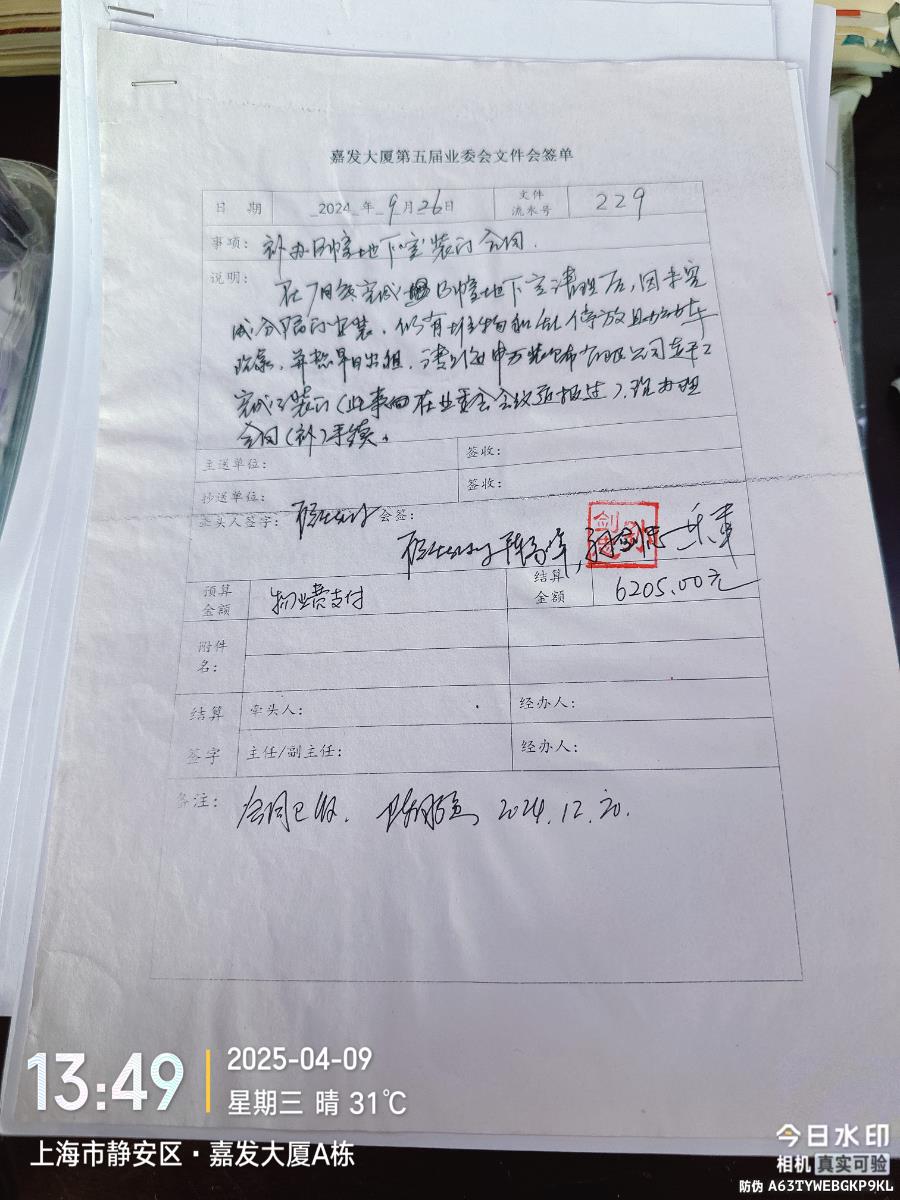 嘉发大厦第五届业委会文件会签单
日 期 2024 年 9 月 26 日 文件流水号 229
事项: 补办B幢地下室装门合同.
说明: 在7月底完成B幢地下室清理后,因未完
成分隔门安装,仍有堆物和乱停放助动车
现象,并想早日出租,请上海申万装饰有限公司在
完成了装门(此事曾在业委会会议通报过),现办理
合同(补)手续。
主送单位: 签收:
抄送单位: 签收:
牵头人签字: 会签:
预算金额 物业费支付 结算金额 6205.00元
附件名:
结算签字 牵头人: 经办人:
主任/副主任: 经办人:
备注: 合同已收. 2024.12.20.
13:49
2025-04-09
星期三 晴 31℃
上海市静安区·嘉发大厦A栋
今日水印
相机 真实可验
防伪 A63TYWEBGKP9KL